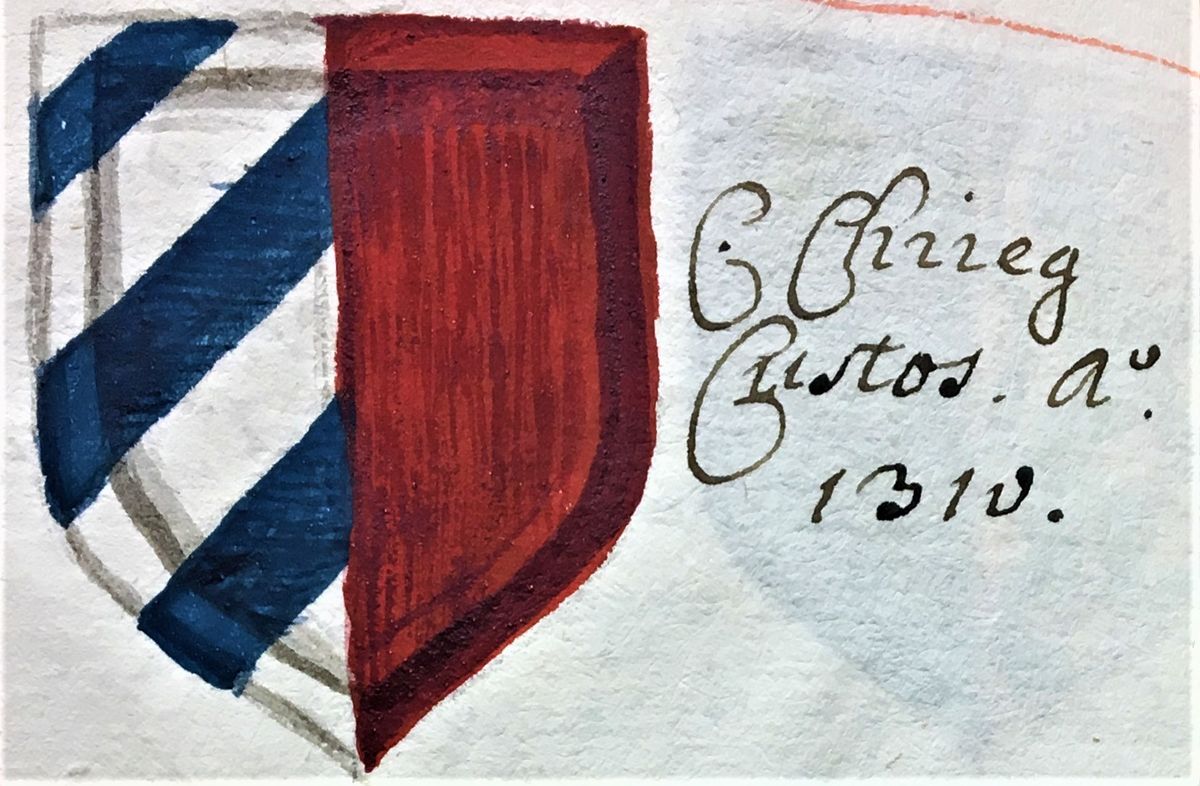 C. Chrieg
Custos. aº.
1310.